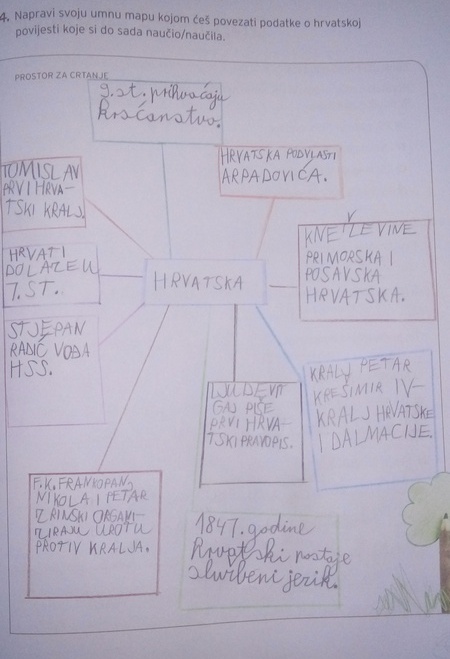 4. Napravi svoju umnu mapu kojom ćeš povezati podatke o hrvatskoj
povijesti koje si do sada naučio/naučila.
PROSTOR ZA CRTANJE
9.st. prihvaćaju
kršćanstvo.
HRVATSKA POD VLASTI
ARPADOVIĆA.
TOMISLAV
PRVI HRVA-
TSKI KRALJ.
KNEŽEVINE
PRIMORSKA I
POSAVSKA
HRVATSKA.
HRVATI
DOLAZE U
7. ST..
HRVATSKA
STJEPAN
RADIĆ VOĐA
HSS.
LJUDEVIT
GAJ PIŠE
PRVI HRVA-
TSKI PRAVOPIS.
KRALJ PETAR
KREŠIMIR IV-
KRALJ HRVATSKE
I DALMACIJE.
F.K. FRANKOPAN,
NIKOLA I PETAR
ZRINSKI ORGANI-
ZIRAJU UROTU
PROTIV KRALJA.
1847. godine
hrvatski postaje
službeni jezik.